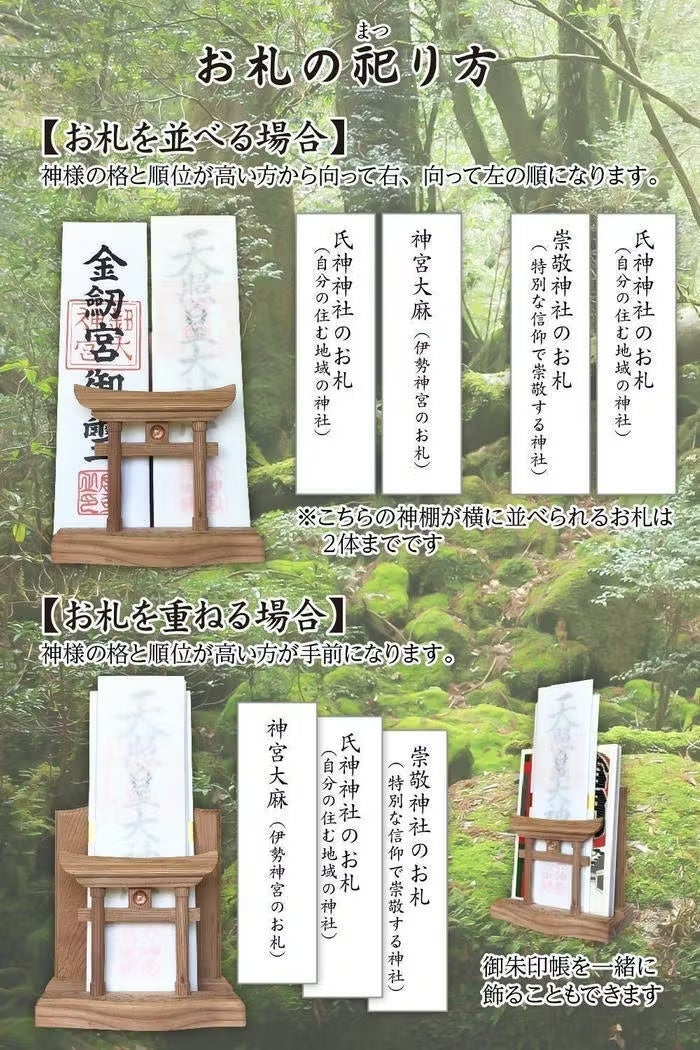 まつ
お札の祀り方
【お札を並べる場合】
神様の格と順位が高い方から向って右、向って左の順になります。
金劔宮御璽
天照皇大神
氏神神社のお札
（自分の住む地域の神社）
神宮大麻（伊勢神宮のお札）
崇敬神社のお札
（特別な信仰で崇敬する神社）
氏神神社のお札
（自分の住む地域の神社）
※こちらの神棚が横に並べられるお札は
2体までです
【お札を重ねる場合】
神様の格と順位が高い方が手前になります。
天照皇大神
神宮大麻（伊勢神宮のお札）
氏神神社のお札
（自分の住む地域の神社）
崇敬神社のお札
（特別な信仰で崇敬する神社）
天照皇大
御朱印帳を一緒に
飾ることもできます